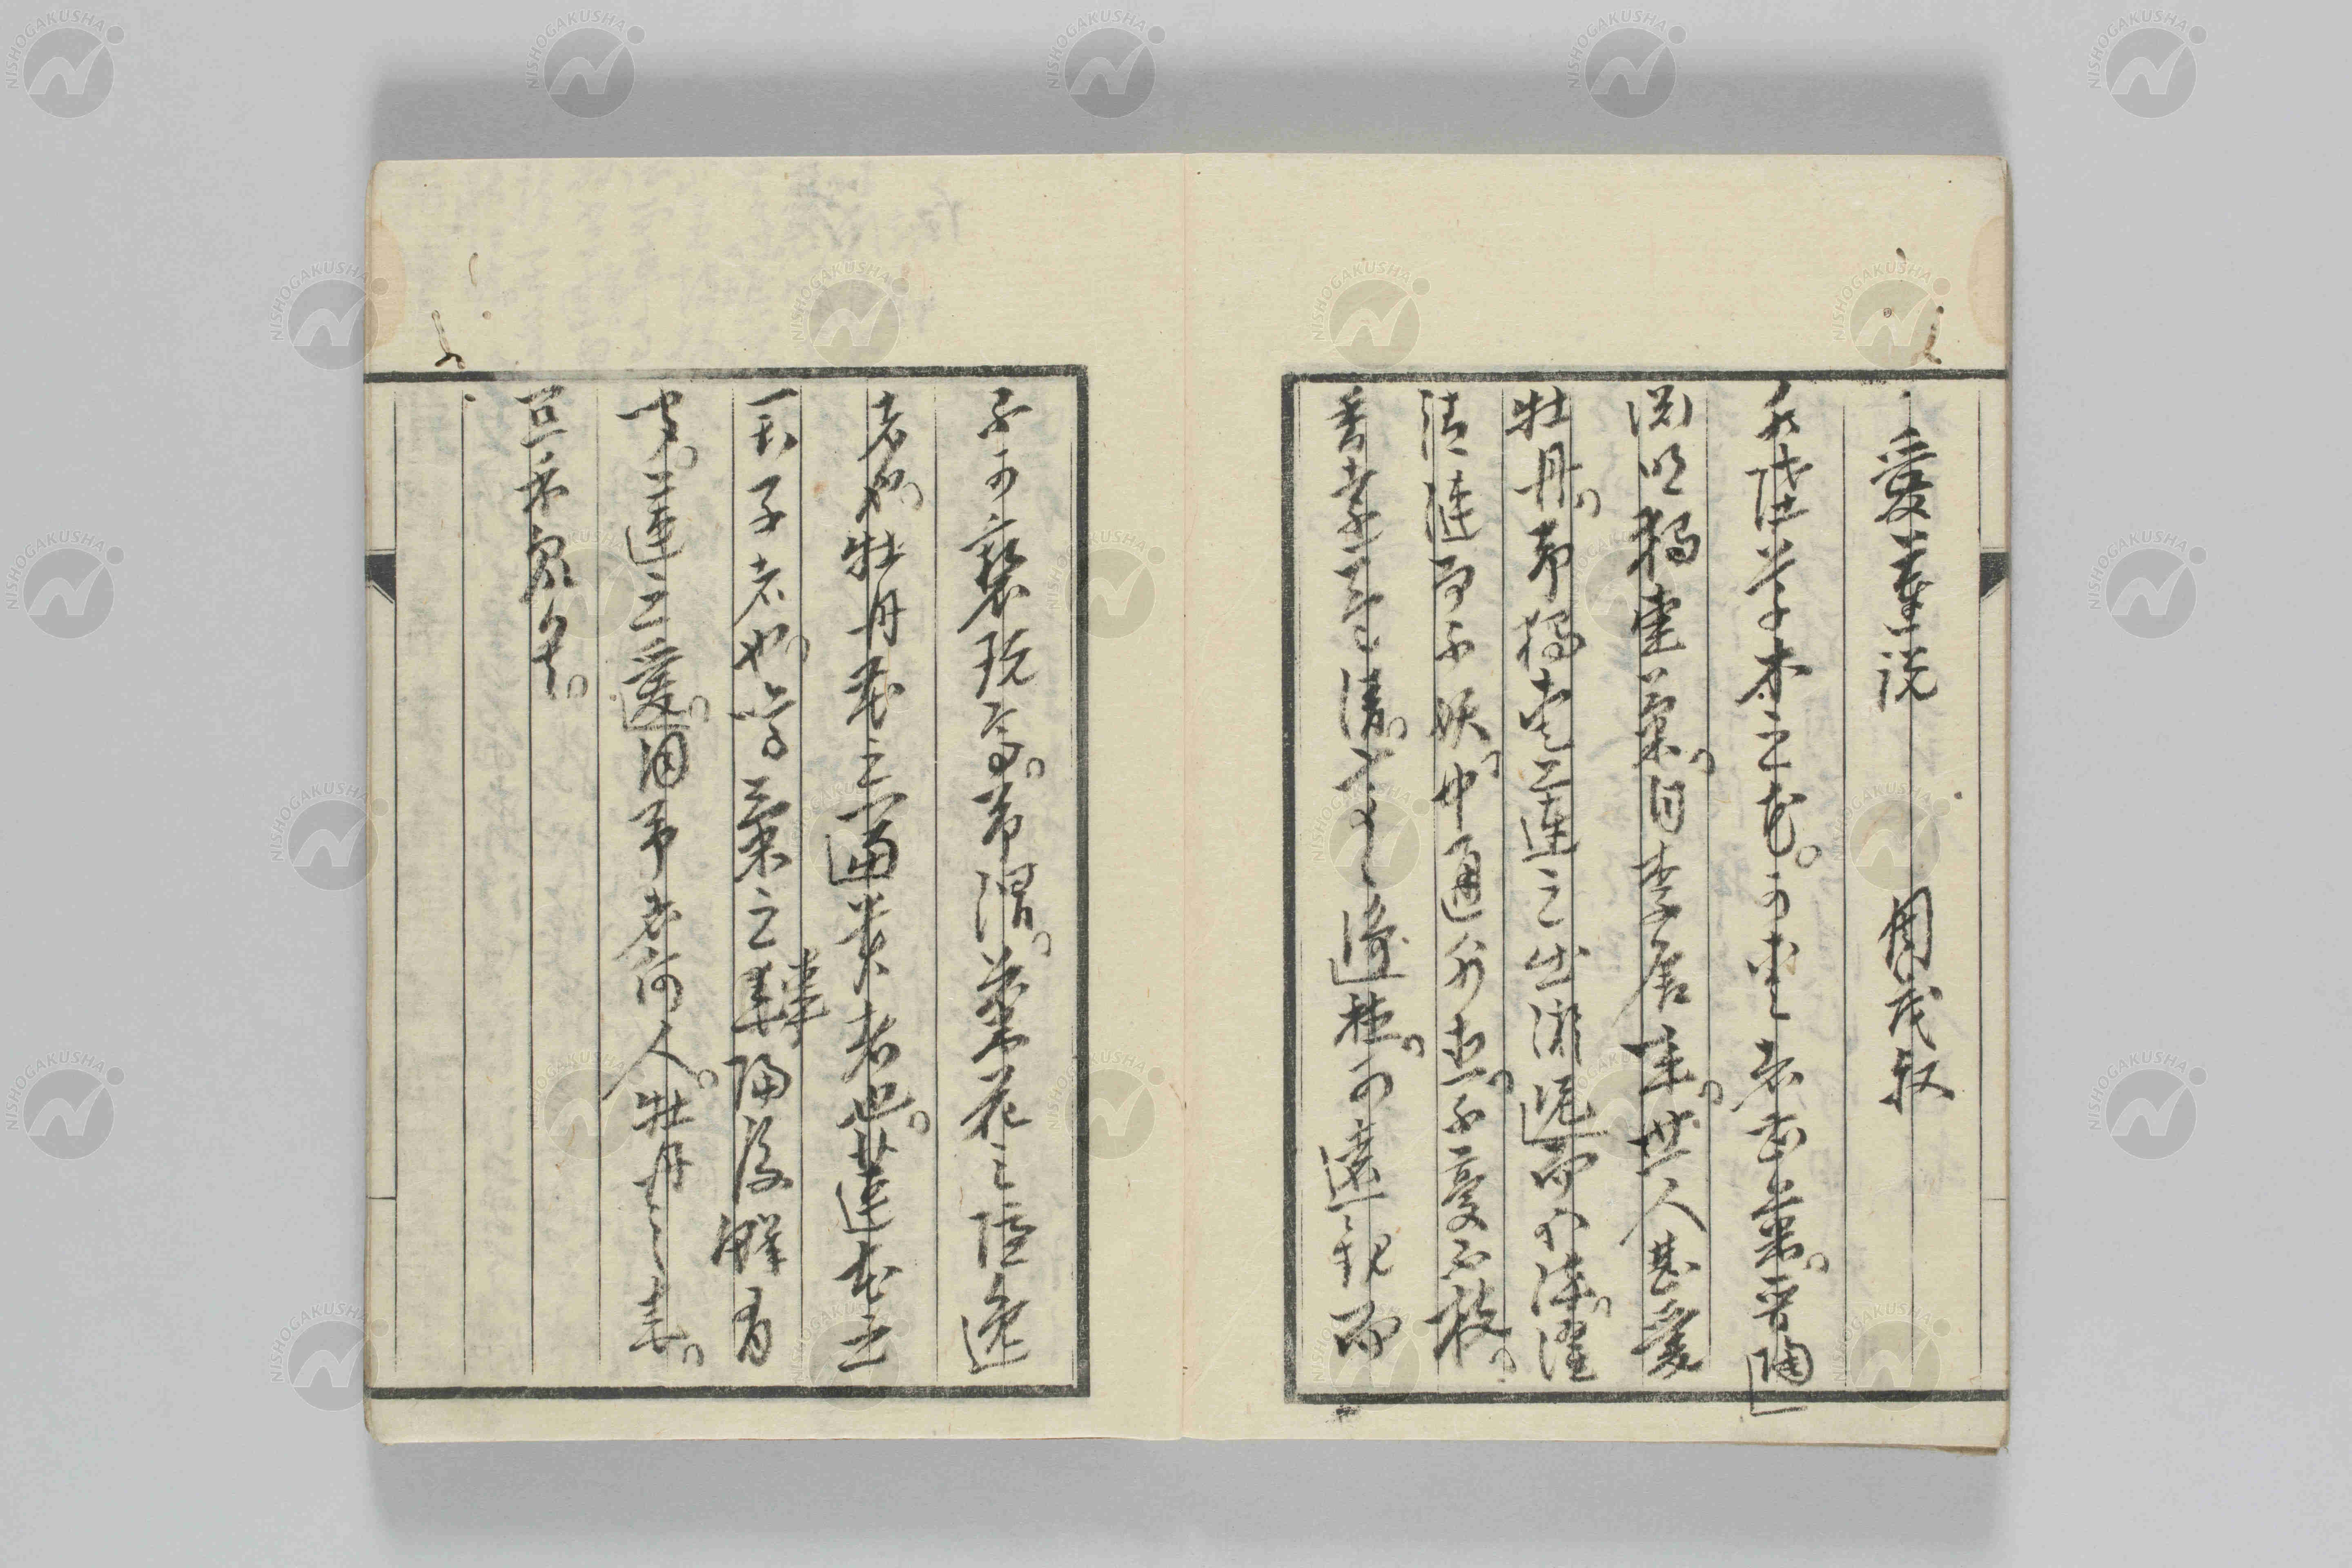 愛蓮説　周茂叔
水陸草木之花。可愛者甚蕃。晋陶
淵明独愛菊。自李唐来。世人甚愛
牡丹。予独愛蓮之出淤泥而不染。濯
清漣而不妖。中通外直。不蔓不枝。
香遠益清。
可遠観而
不可褻玩焉。予謂。菊花之隠逸
者也。牡丹花之富貴者也。蓮花之
君子者也。噫菊之 陶後鮮有
聞。蓮之愛。同予者何人。牡丹之愛。
宜乎衆矣。
NISHOGAKUSHA